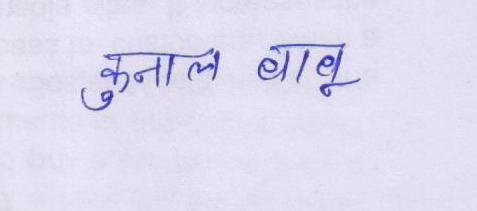 कुनाल बाबू